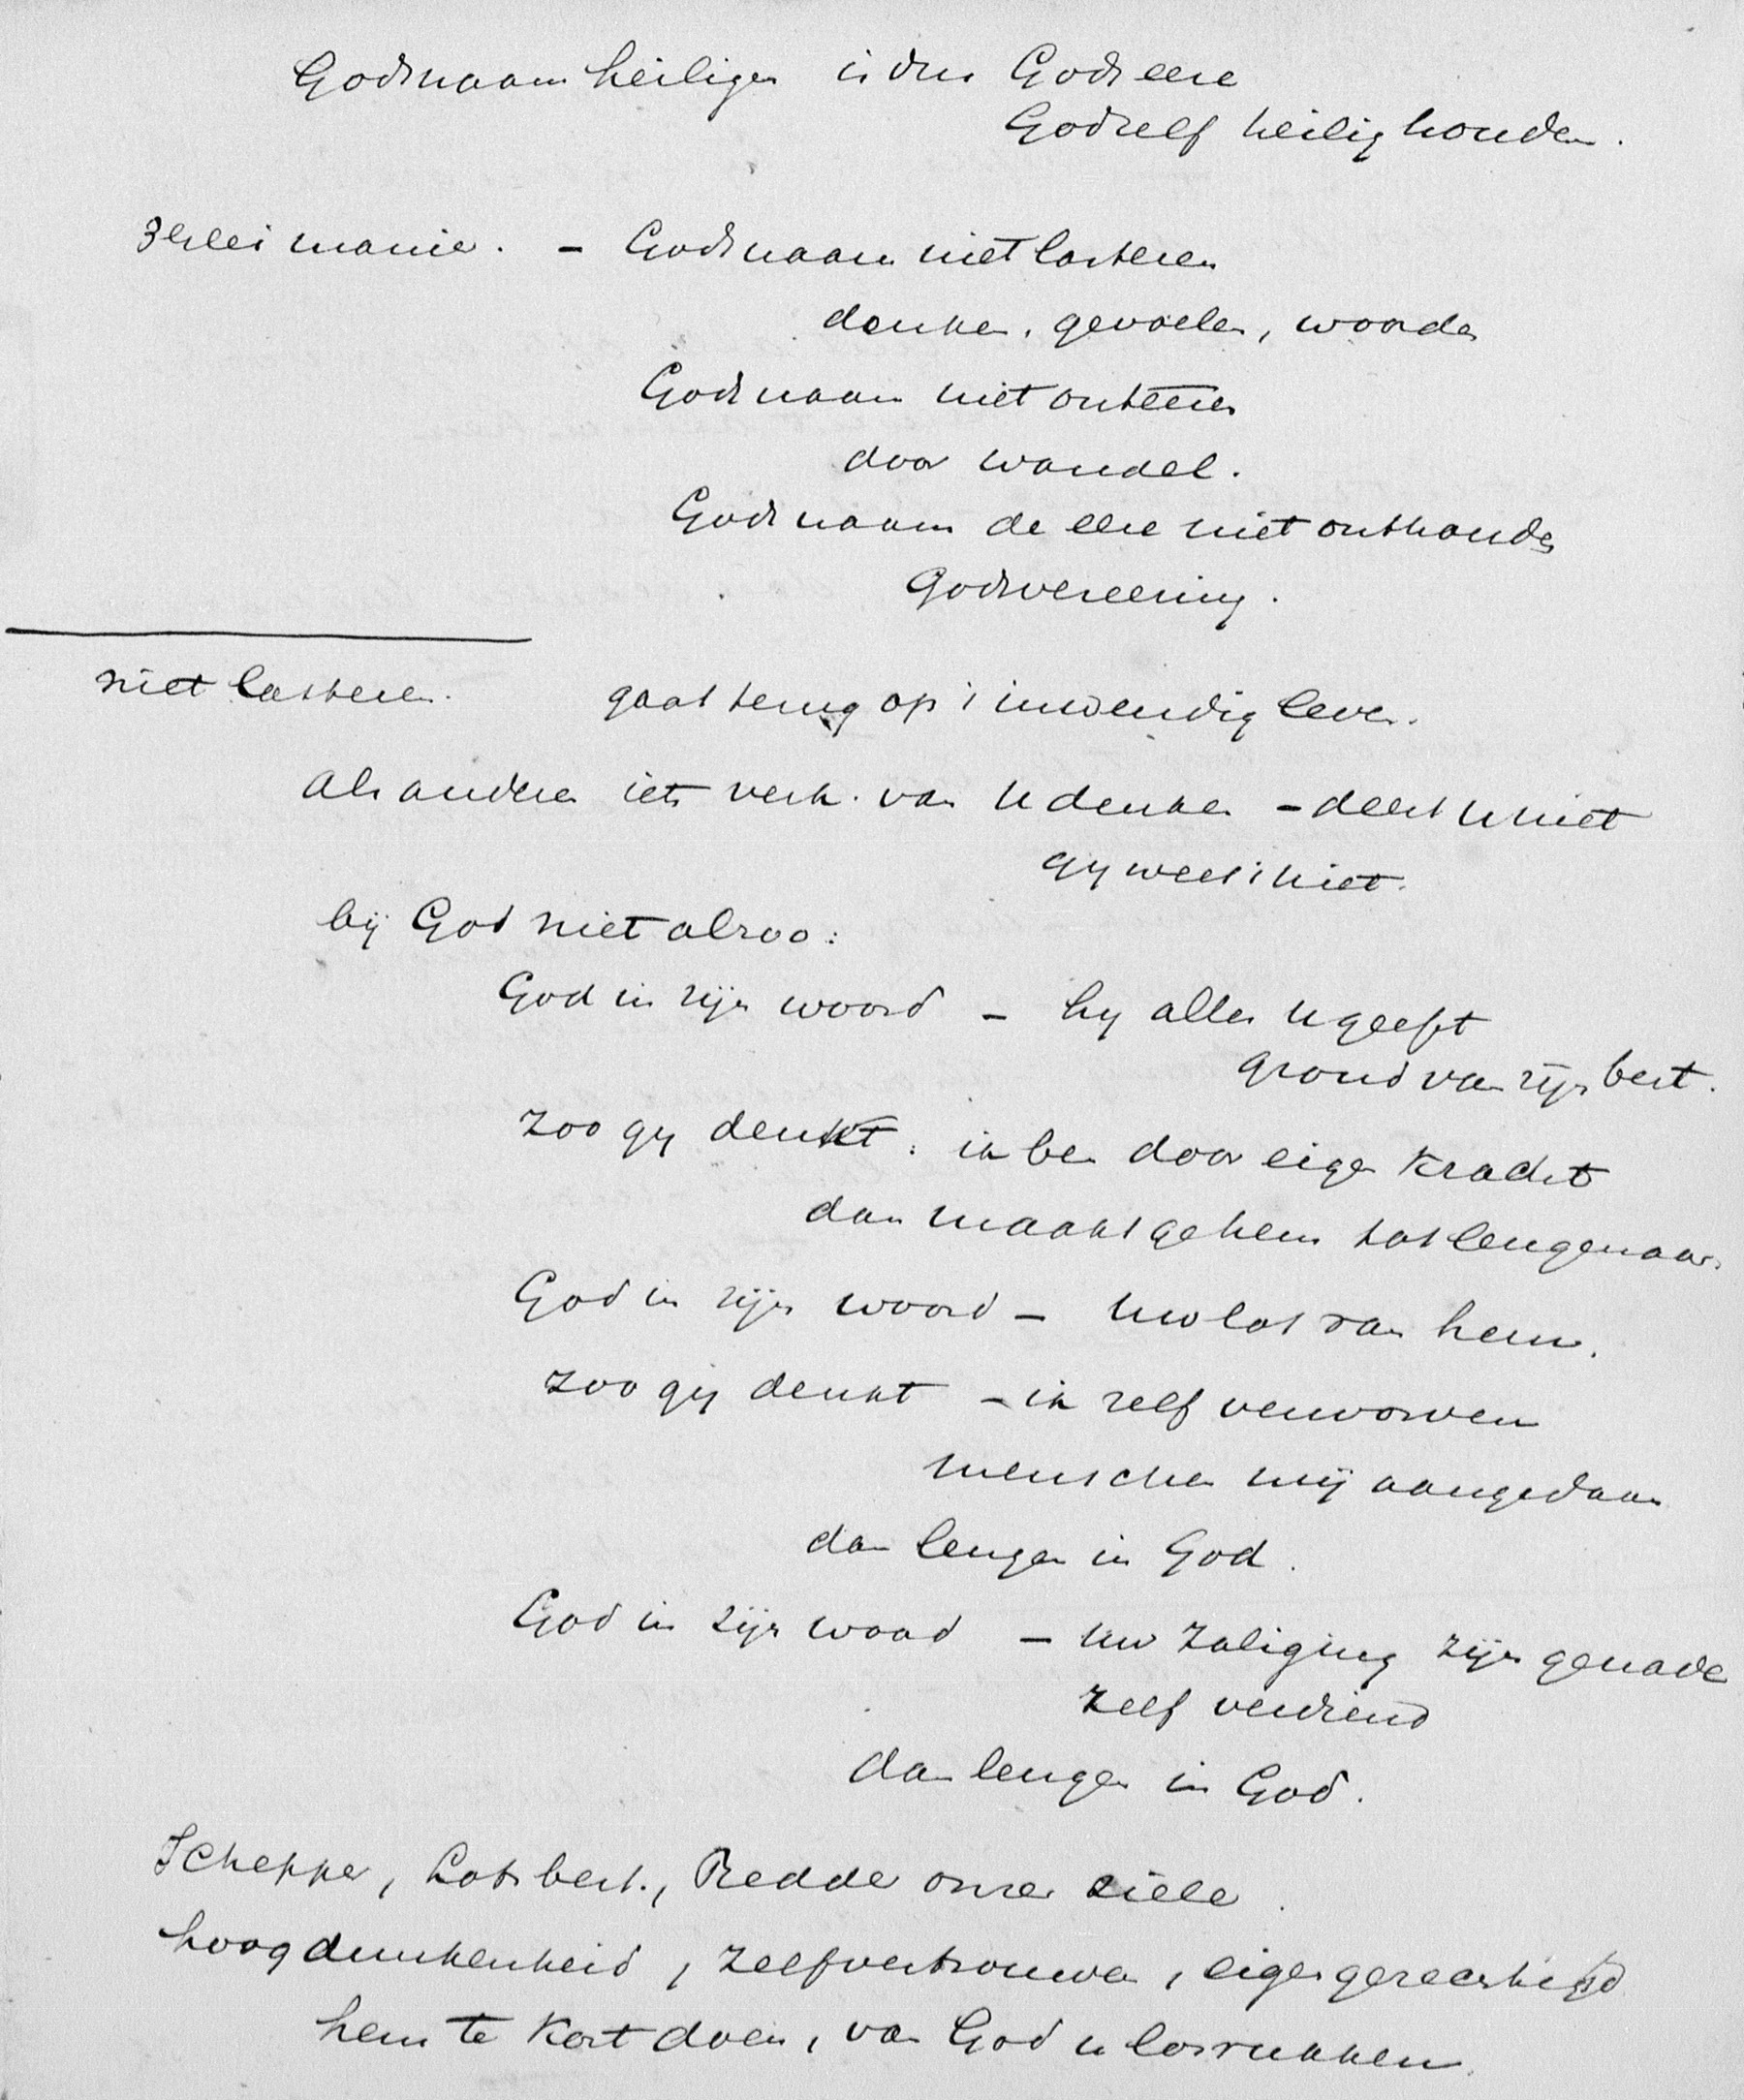 Godsnaam heiligen is dus Gods eere
Godzelf heilig houden.
3erlei manier. – Godsnaam niet lasteren
denken, gevoelen, woorden
Godsnaam niet onteeren
door wandel.
Godsnaam de eere niet onthouden
Godsvereering.
niet lasteren. gaat terug op 't inwendig leven.
Als anderen iets verk. van U denken – deert U niet
gij weet 't niet.
bij God niet alzoo:
God in zijn woord – hij alles U geeft
grond van zijn best.
Zoo gij denkt: ik ben door eigen kracht
dan maakt ge hem tot leugenaar.
God in zijn woord – Uw lot van hem.
Zoo gij denkt – ik zelf verworven
menschen mij aangedaan
dan leugen in God.
God in zijn woord – Uw zaliging zijn genade
Zelf verdiend
dan leugen in God.
Schepper, Lotsbest., Redder onzer ziele.
hoogdunkenheid, zelfvertrouwen, eigengerechtigd
hem te kort doen, van God u losrukken.